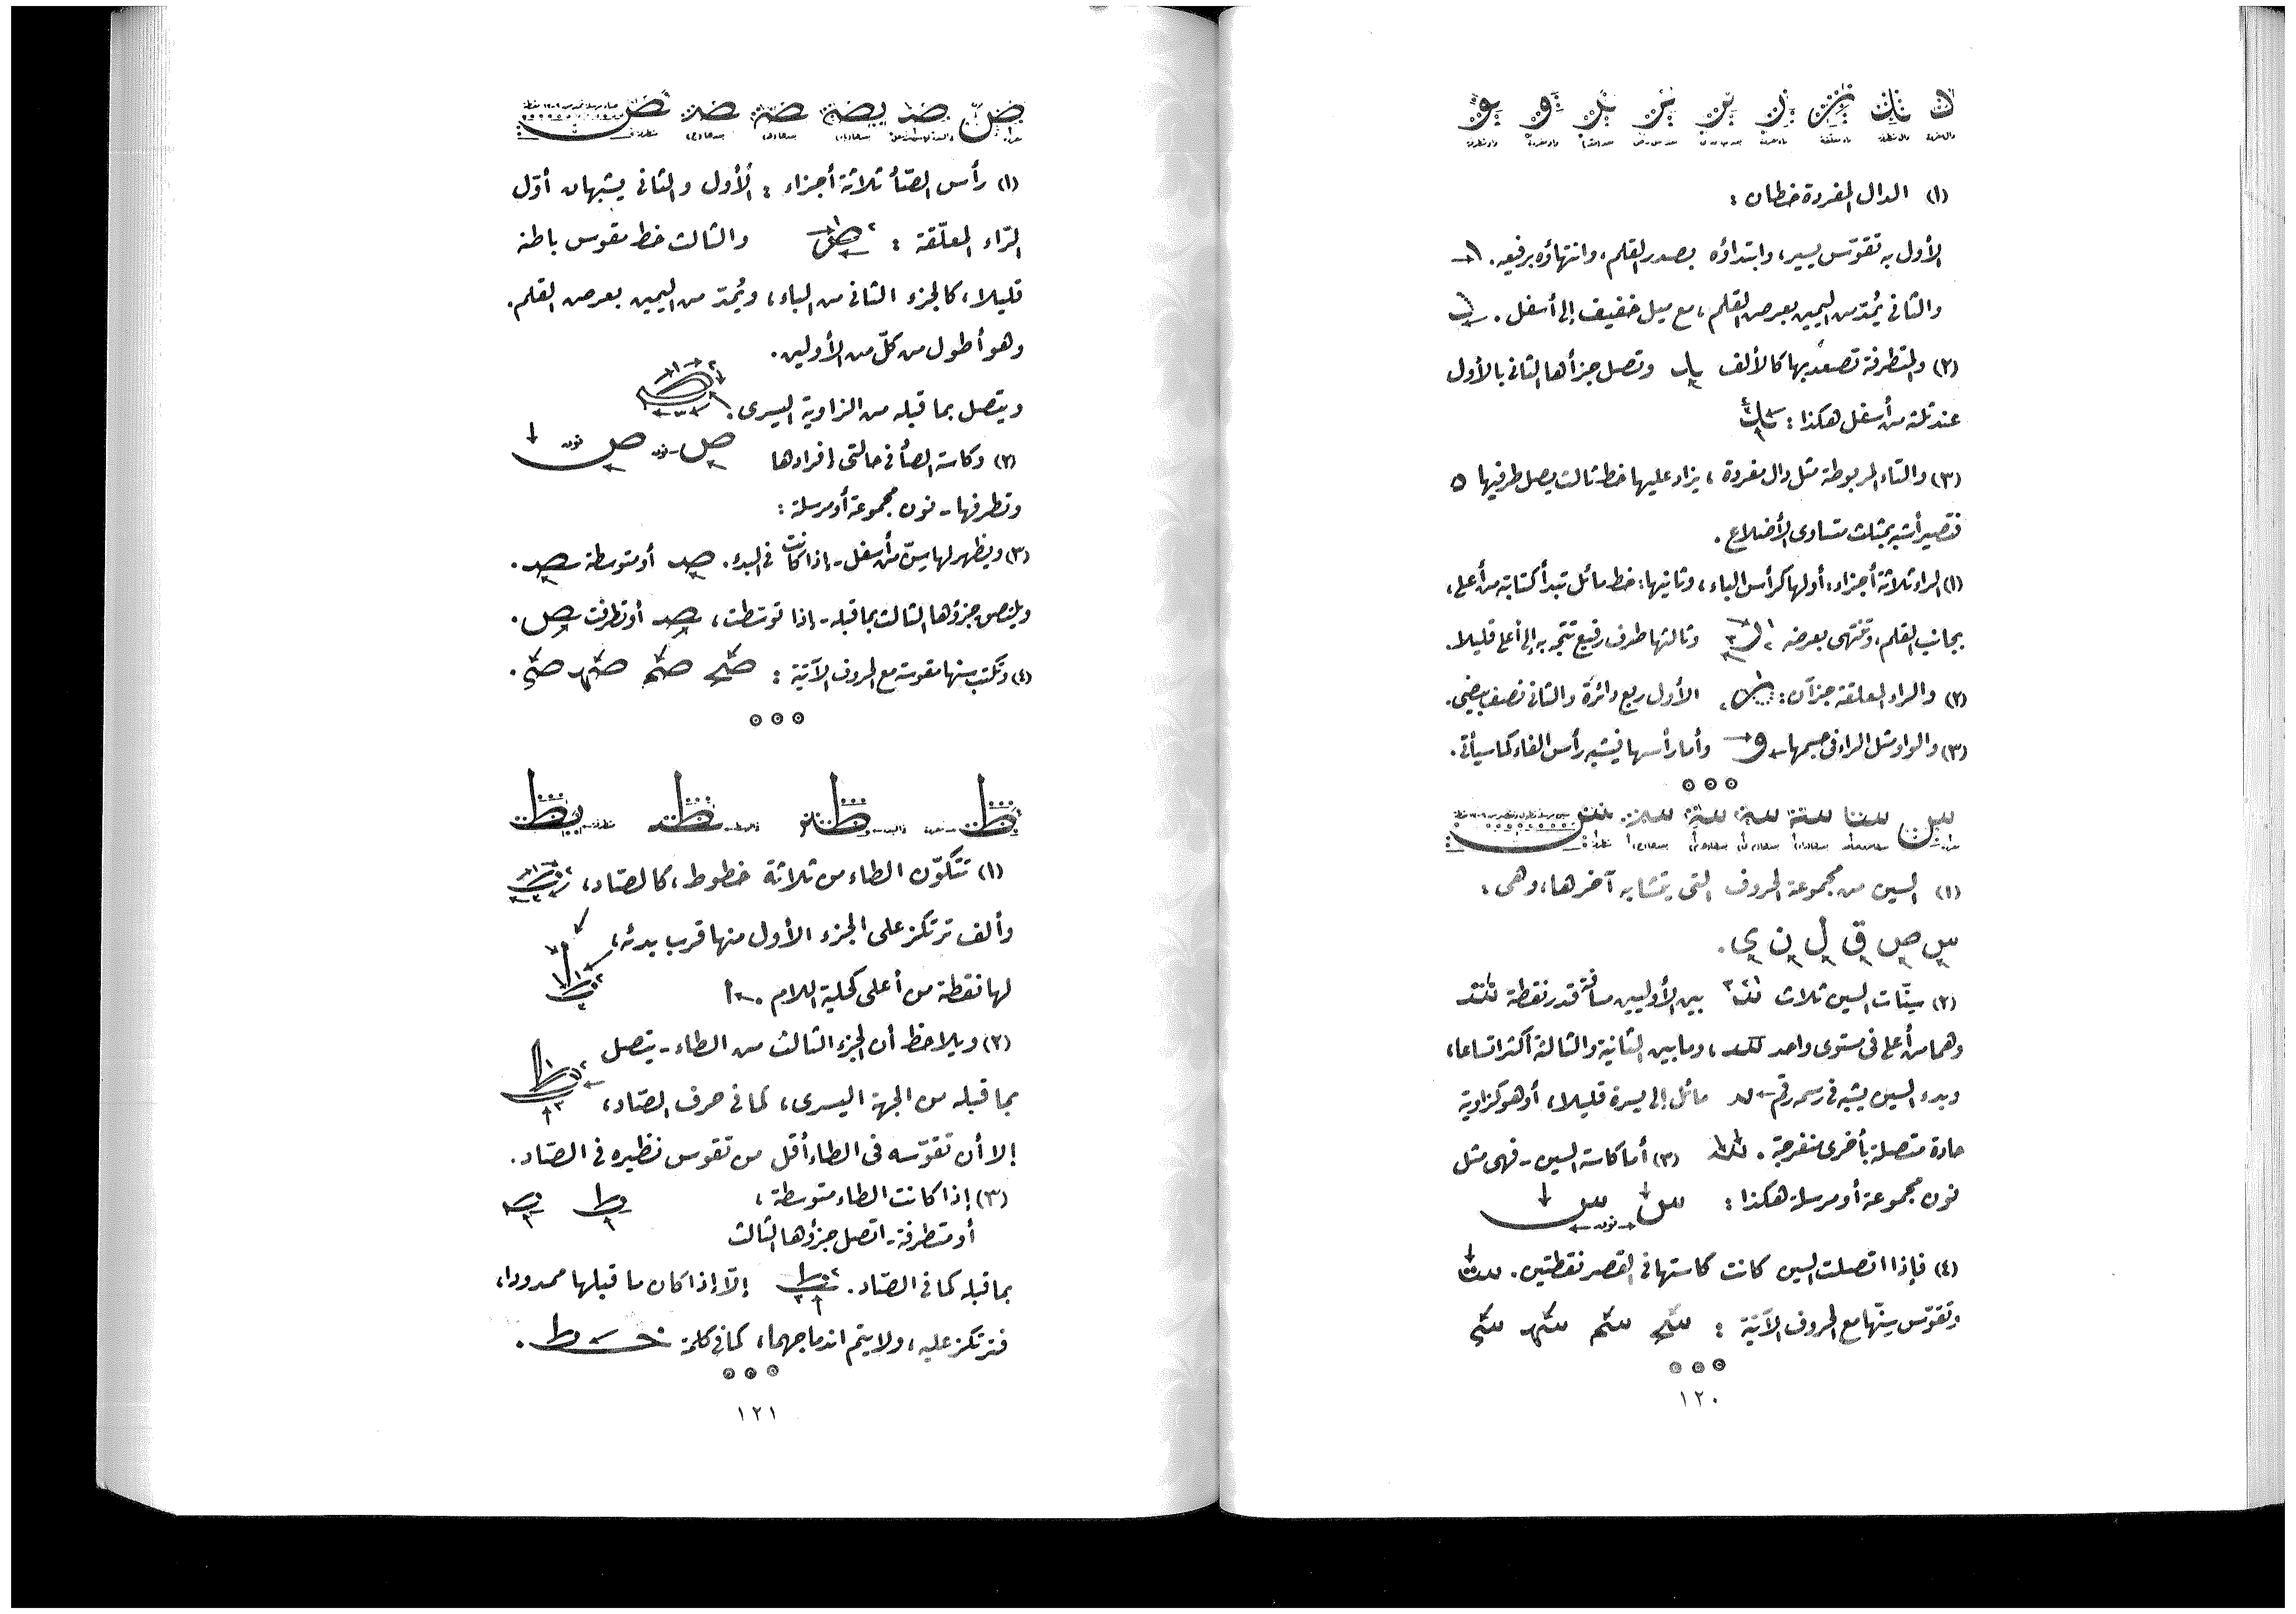 (١) الدال المفردة خطان :
الأول به تقوّس يسير، وابتداؤه بصدر القلم، وانتهاؤه برفيعه .
والثاني يُمدّ من اليمين بعرض القلم، مع ميل خفيف إلى أسفل .
(٢) والمتطرفة تصعد بها كالألف وتصل جزأها الثاني بالأول
عند ثلثه من أسفل هكذا :
(٣) والتاء المربوطة مثل دال مفردة، يزاد عليها خط ثالث يصل طرفيها ه
فتصير أشبه بمثلث متساوى الأضلاع .
(١) الراء ثلاثة أجزاء : أولها كرأس الباء، وثانيها : خط مائل تبدأ كتابته من أعلى،
بجانب القلم، وتنتهى بعرضه وثالثها طرف رفيع تتجه به إلى أعلى قليلا .
(٢) والراء المعلقة جزآن : الأول ربع دائرة والثاني نصف بيضي .
(٣) والواو مثل الراء في جسمها و وأما رأسها فيشبه رأس الفاء كما سيأتى .
(١) السين من مجموعة الحروف التى يتشابه آخرها، وهى :
س ص ق ل ن ى .
(٢) سِنّات السين ثلاث بين الأوليين مسافة قدر نقطة
وهما من أعلى في مستوى واحد ، وما بين الثانية والثالثة أكثر اتساعا،
وبدء السين يشبه في رسمه رقم مائل إلى يسرة قليلا، أو هو كزاوية
حادة متصلة بأخرى منفرجة . (٣) أما كاسة السين - فهى مثل
نون مجموعة أو مرسلة هكذا : س نون س
(٤) فإذا اتصلت السين كانت كاستها في القصر نقطتين .
وتقوّس سِنّها مع الحروف الآتية :
١٢٠
(١) رأس الصاد ثلاثة أجزاء : الأول والثانى يشبهان أوّل
الرّاء المعلّقة : والثالث خط مقوس باطنه
قليلا، كالجزء الثانى من الباء، ويُمدّ من اليمين بعرض القلم .
وهو أطول من كلّ من الأولين .
ويتصل بما قبله من الزاوية اليسرى .
(٢) وكاسة الصاد في حالتى إفرادها ص نون ص نون
وتطرفها - نون مجموعة أو مرسلة :
(٣) ويظهر لها سِنّ من أسفل - إذا كانت في البدء . صد أو متوسطة صد .
ويلتصق جزؤها الثالث بما قبله - إذا توسّطت، صد أو تطرفت ص .
(٤) وتكتب سنها مقوسة مع الحروف الآتية :
(١) تتكوّن الطاء من ثلاثة خطوط، كالصّاد،
وألف ترتكز على الجزء الأول منها قرب بدئه،
لها نقطة من أعلى كحلية اللام .
(٢) ويلاحظ أن الجزء الثالث من الطاء - يتصل
بما قبله من الجهة اليسرى، كما فى حرف الصّاد،
إلا أن تقوّسه فى الطاء أقل من تقوس نظيره في الصّاد .
(٣) إذا كانت الطاء متوسطة،
أو متطرفة - اتصل جزؤها الثالث
بما قبله كما في الصّاد . إلاّ إذا كان ما قبلها ممدودا،
فترتكز عليه، ولا يتم اندماجهما، كما في كلمة .
١٢١